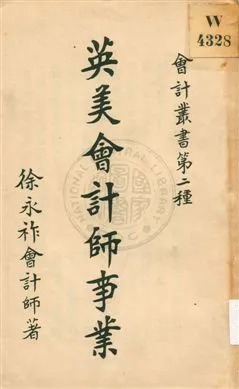 W
4328
會計叢書第二種
英美會計師事業
徐永祚會計師著